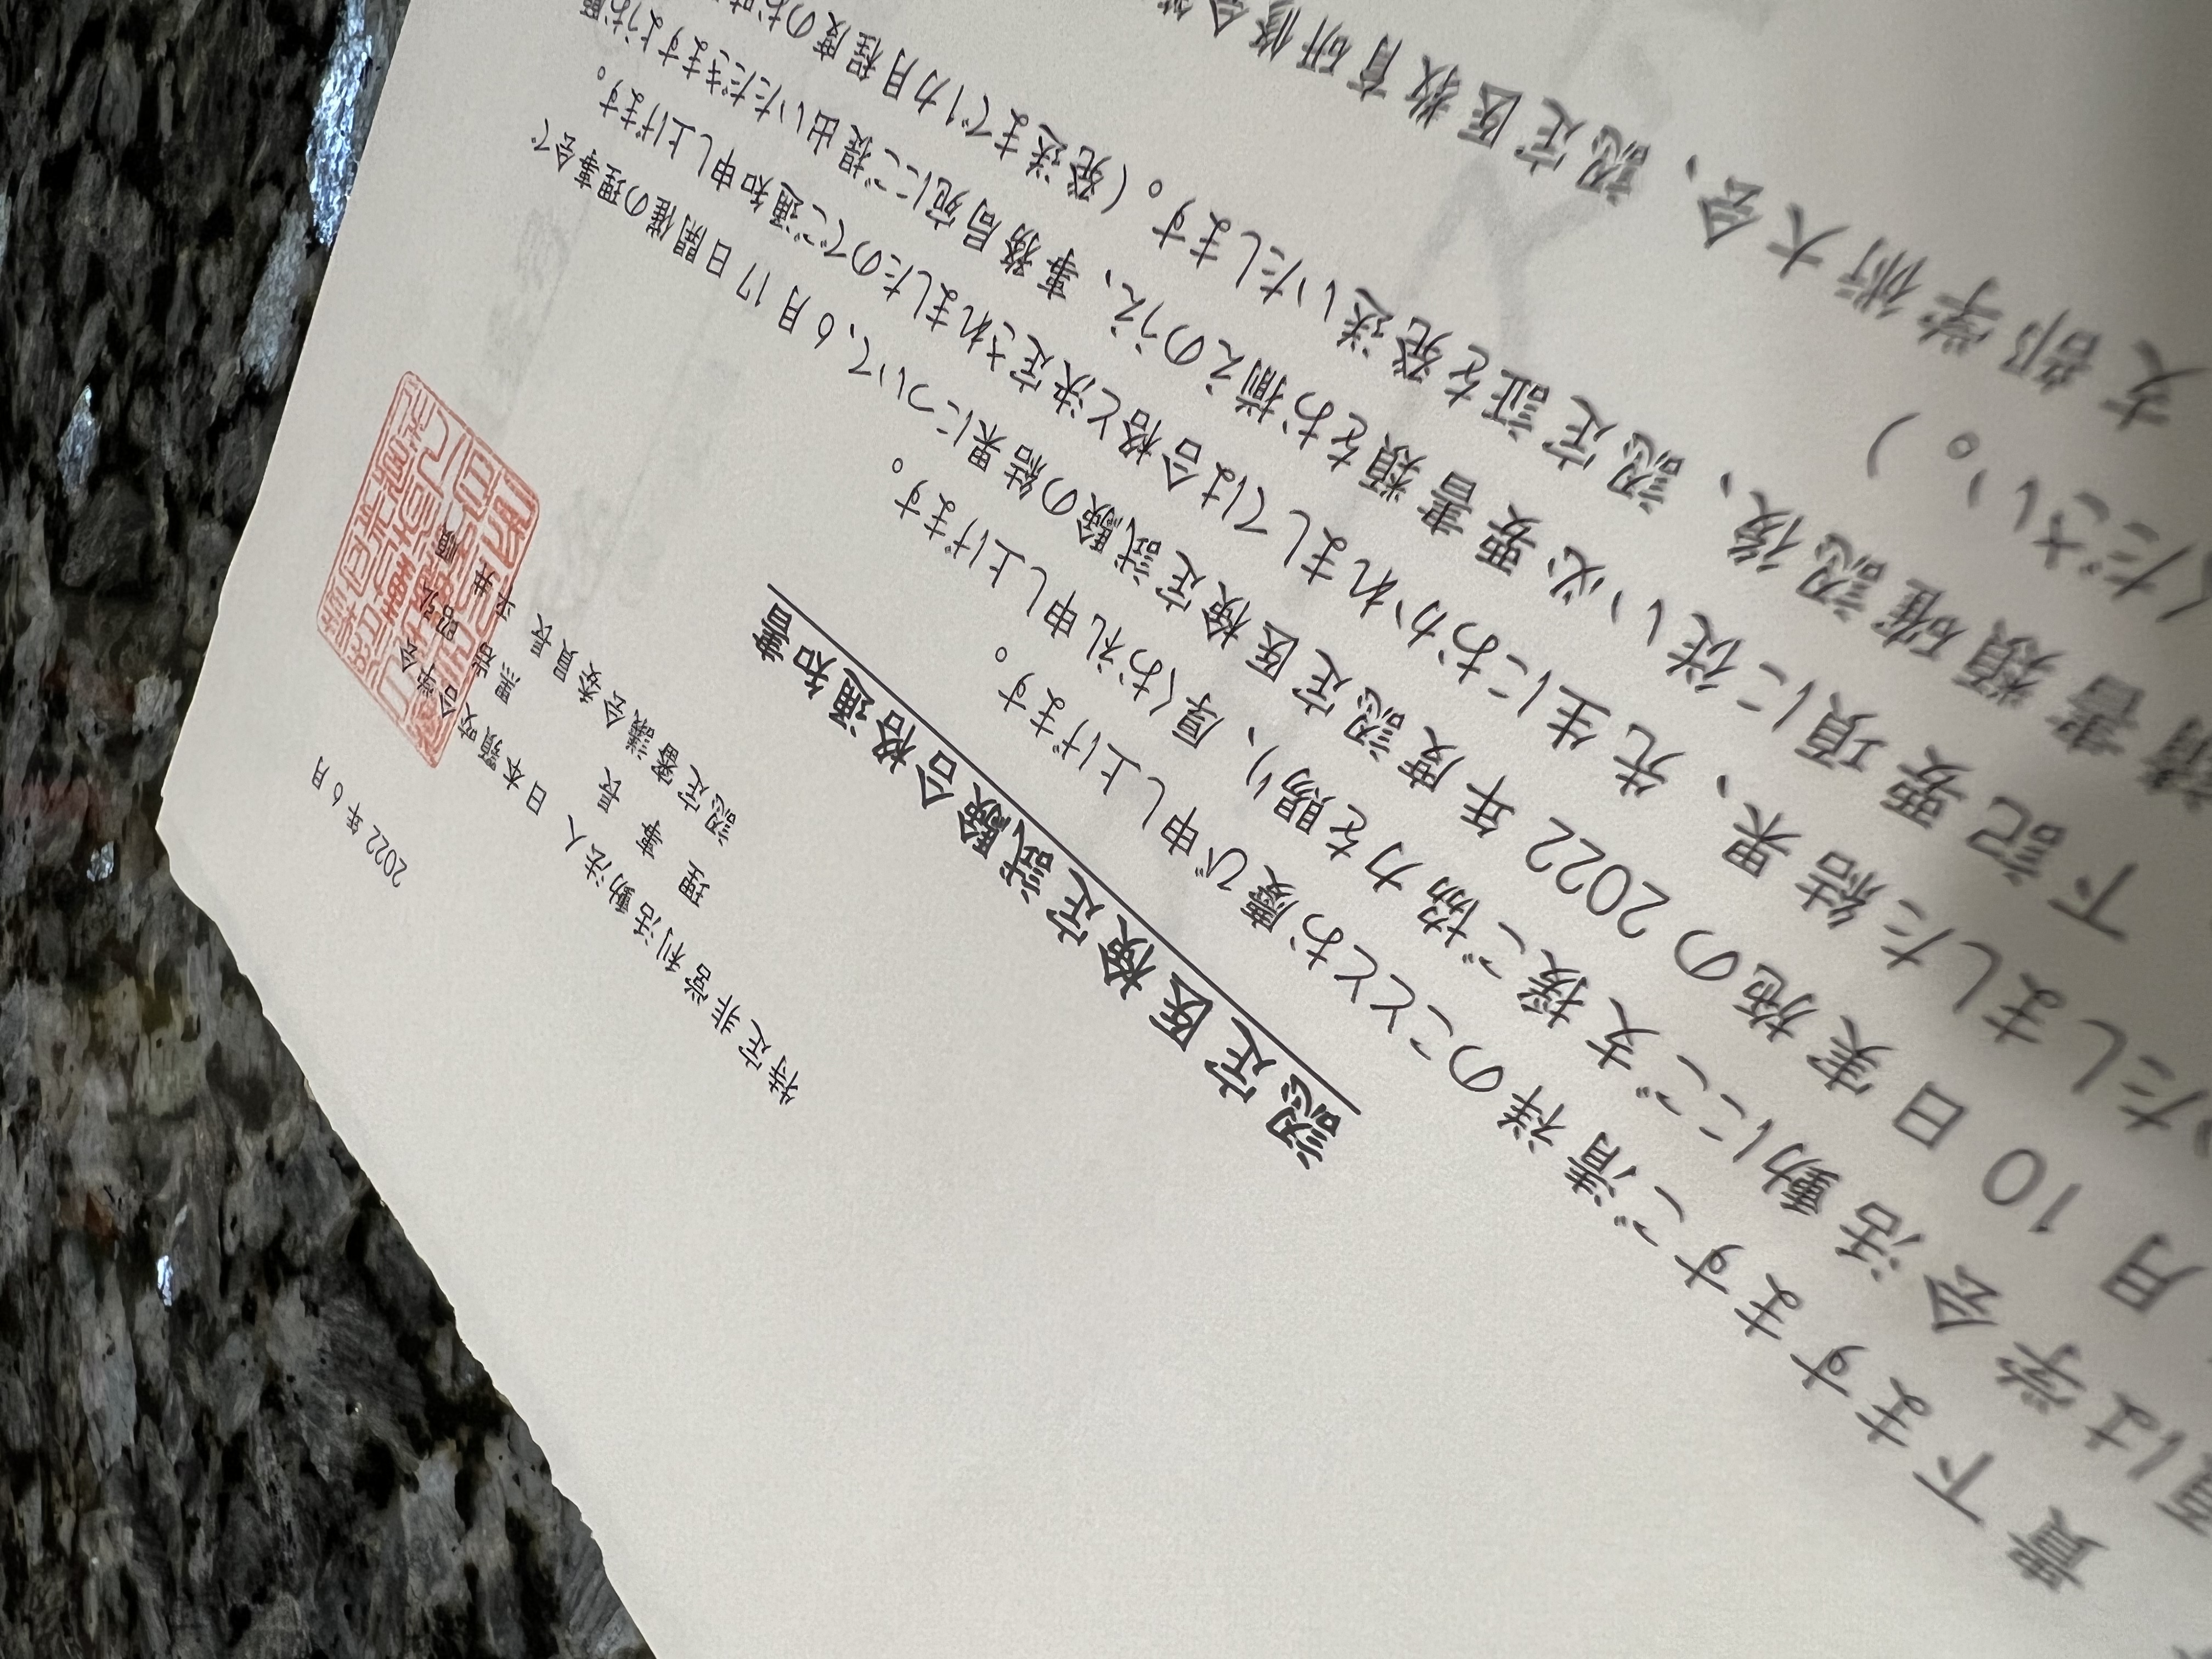 2022年6月
特定非営利活動法人 日本顎咬合学会
理事長 黒岩 昭弘
認定審議会委員長 平井 順
認定医検定試験合格通知書
貴下ますますご清祥のこととお慶び申し上げます。
頃は学会活動にご支援ご協力を賜り、厚くお礼申し上げます。
月10日実施の2022年度認定医検定試験の結果について、6月17日開催の理事会で
いたしました結果、先生におかれましては合格と決定されましたのでご通知申し上げます。
下記要項に従い必要書類をお揃えのうえ、事務局宛にご提出いただきますようお願
請書類確認後、認定証を発送いたします。(発送まで1カ月程度のお時
ください。)
支部学術大会、認定医教育研修会